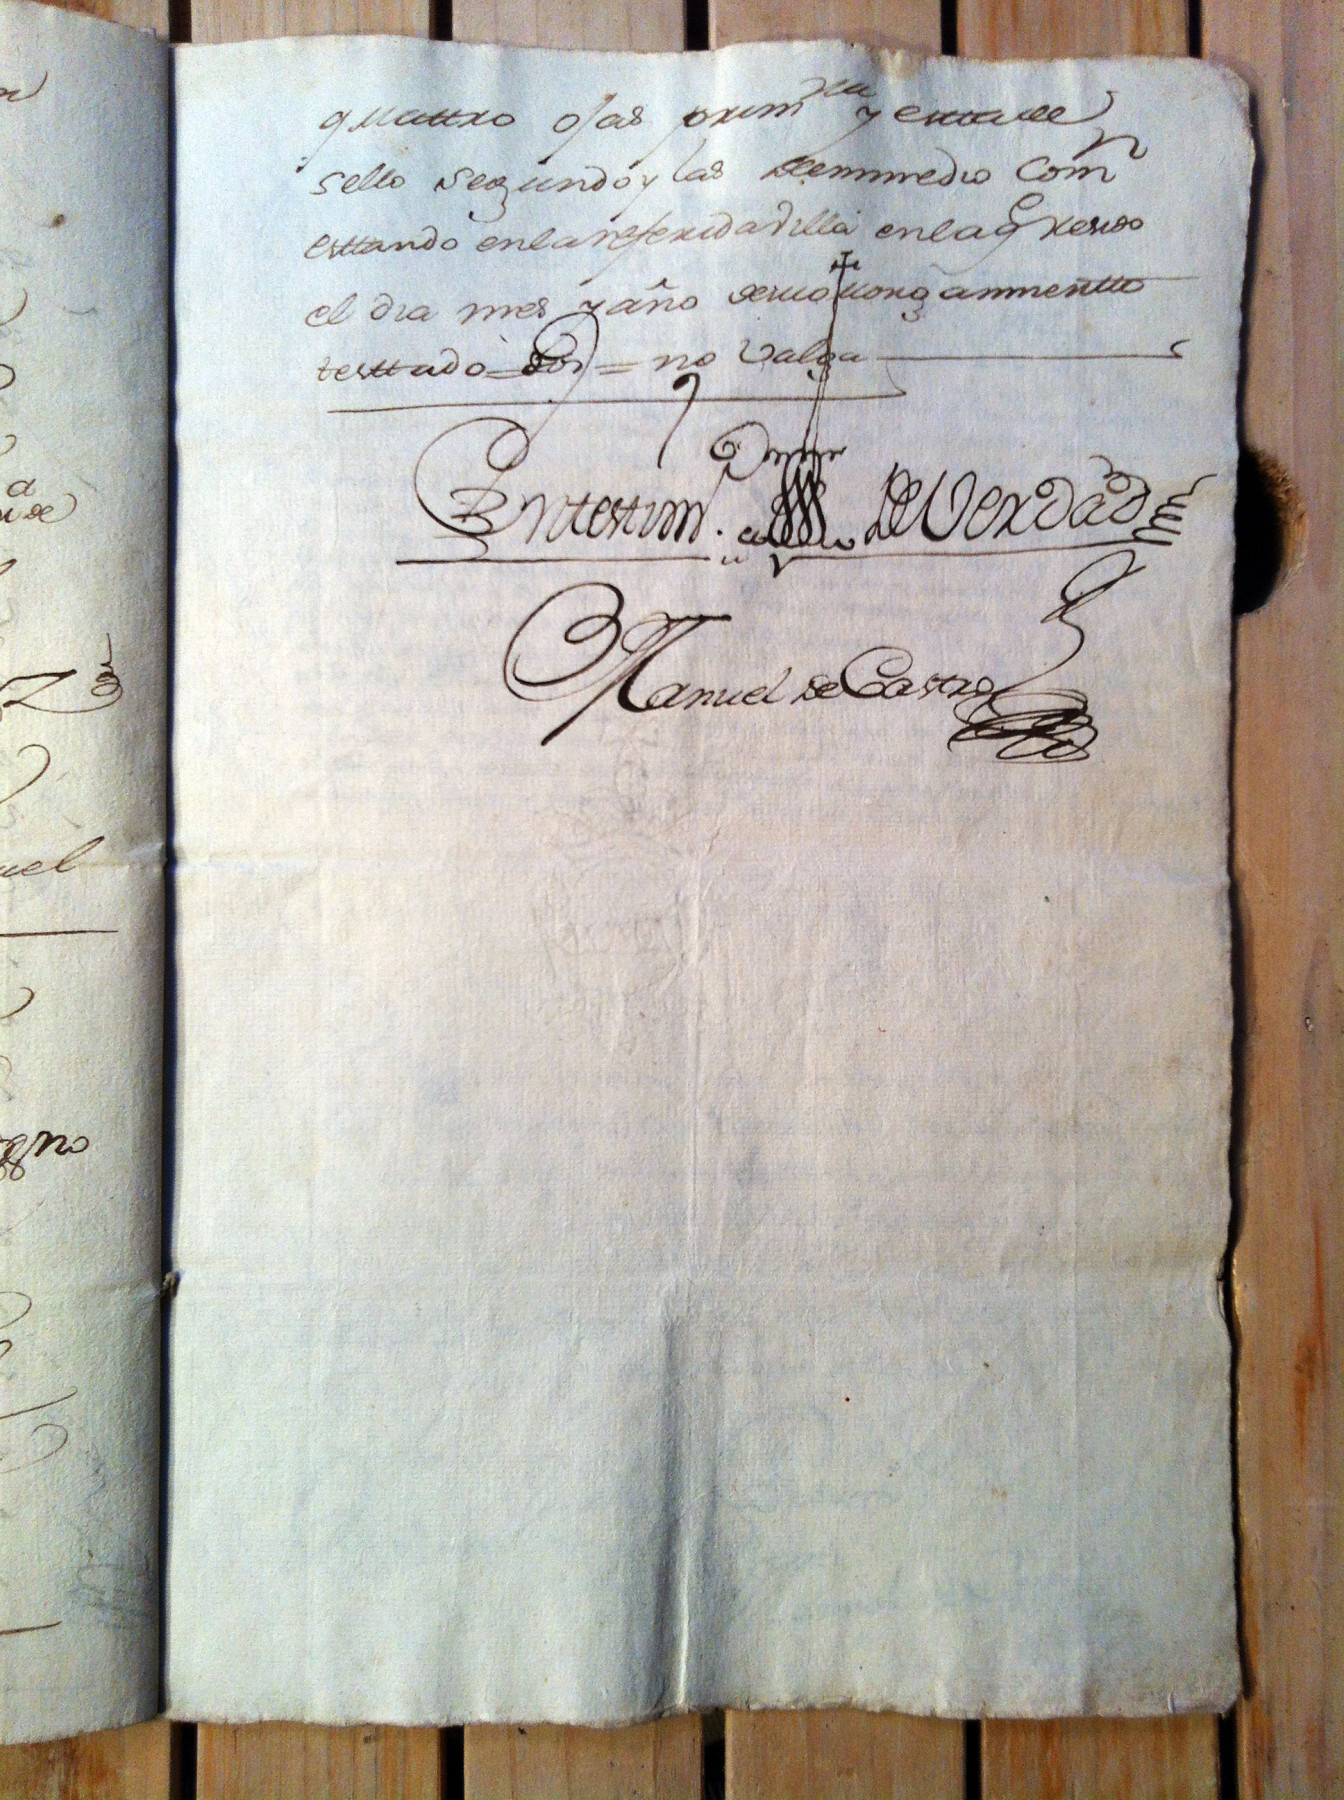 quattro ojas prim.ra y esttade
sello segundo y las deenmedio Comn
esttando enlareferidavilla enlaq resido
el dia mes y año desuottorgammientto
testtado=dos=no Valga
Entestim.o DeVerdad
Manuel de Castro